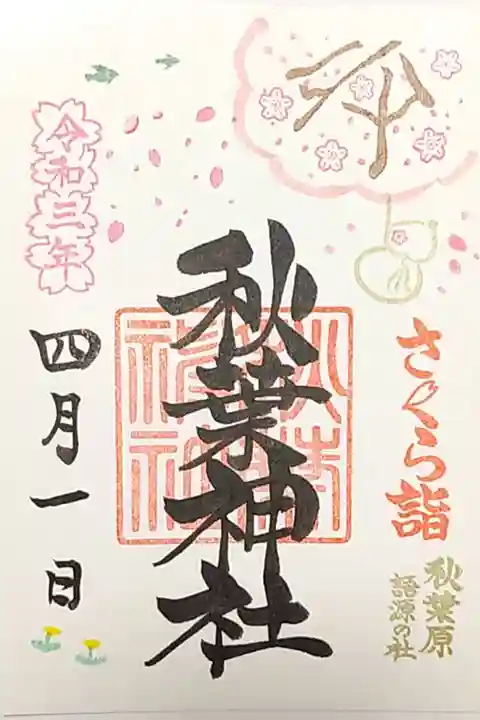 さくら詣
秋葉原
語源の社
秋葉神社
令和三年
四月一日